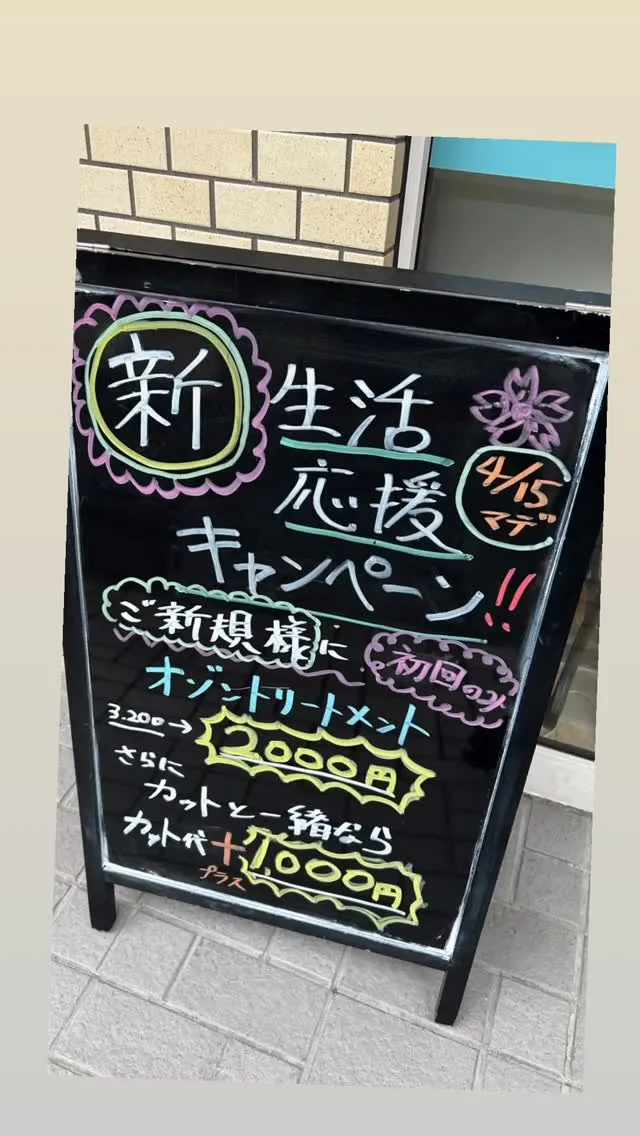 新生活
応援
4/15
マデ
キャンペーン!!
ご新規様に
初回のみ
オゾントリートメント
3.200→2000円
さらに
カットと一緒なら
カット代+1,000円
プラス